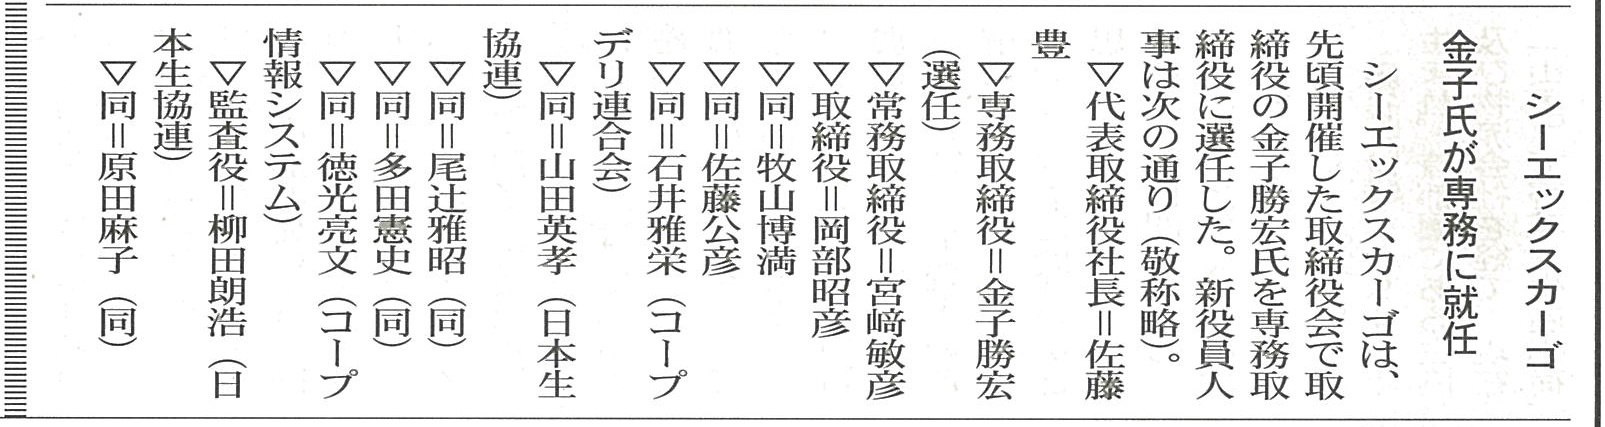 シーエックスカーゴ
金子氏が専務に就任
シーエックスカーゴは、
先頃開催した取締役会で取
締役の金子勝宏氏を専務取
締役に選任した。新役員人
事は次の通り（敬称略）。
▽代表取締役社長＝佐藤
豊
▽専務取締役＝金子勝宏
（選任）
▽常務取締役＝宮﨑敏彦
▽取締役＝岡部昭彦
▽同＝牧山博満
▽同＝佐藤公彦
▽同＝石井雅栄（コープ
デリ連合会）
▽同＝山田英孝（日本生
協連）
▽同＝尾辻雅昭（同）
▽同＝多田憲史（同）
▽同＝徳光亮文（コープ
情報システム）
▽監査役＝柳田朗浩（日
本生協連）
▽同＝原田麻子（同）